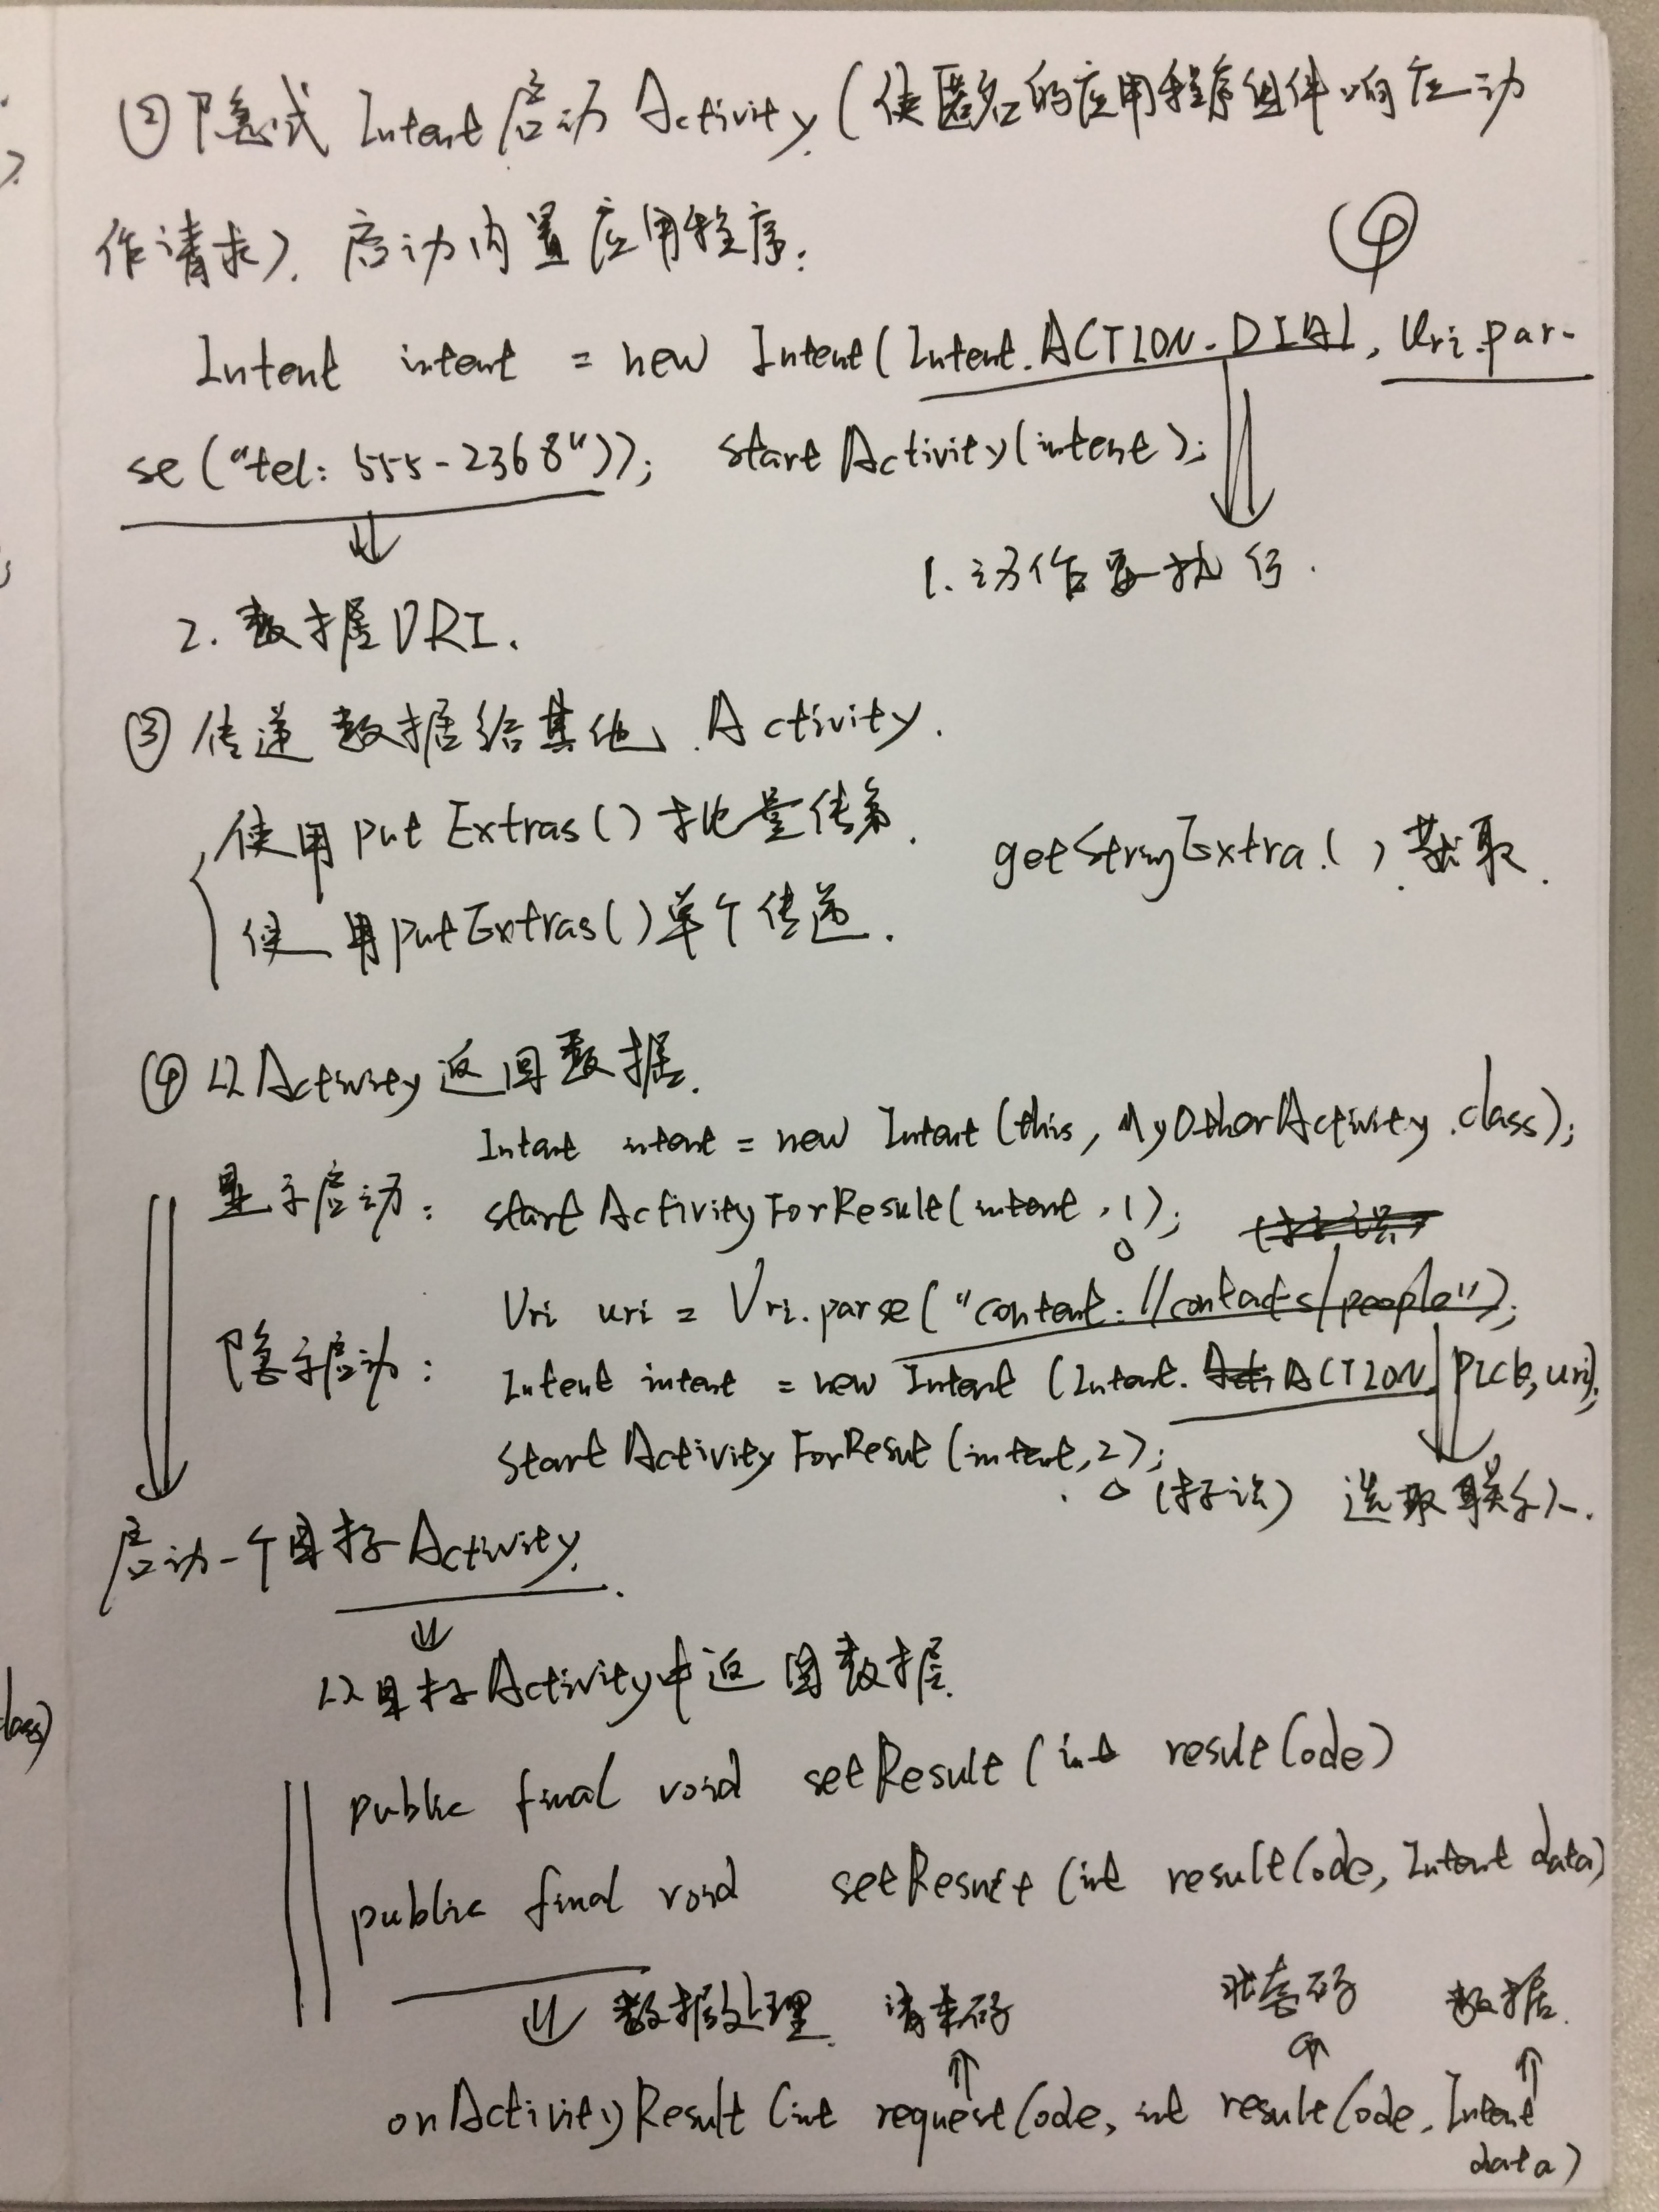 ②隐式 Intent 启动 Activity.(使匿名的应用程序组件响应动
作请求). 启动内置应用程序:
④
Intent intent = new Intent(Intent.ACTION-DIAL, Uri.par-
se("tel: 555-2368")); startActivity(intent);
1.动作要执行.
2.数据URI.
③传递数据给其他.Activity.
使用putExtras()批量传递.
getStringExtra.()获取.
使用putExtras()单个传递.
④从Activity返回数据.
Intent intent = new Intent(this, MyOtherActivity.class);
显示启动: startActivityForResult(intent,1);
Uri uri = Uri.parse("content://contacts/people");
隐示启动: Intent intent = new Intent (Intent. ACTION PICK, uri);
startActivityForResult(intent,2);
(标识) 选取联系人.
启动一个子Activity.
从子Activity中返回数据.
public final void setResult(int resultCode)
public final void setResult(int resultCode, Intent data)
数据处理. 请求码 状态码 数据.
onActivityResult(int requestCode, int resultCode, Intent
data)
lass)